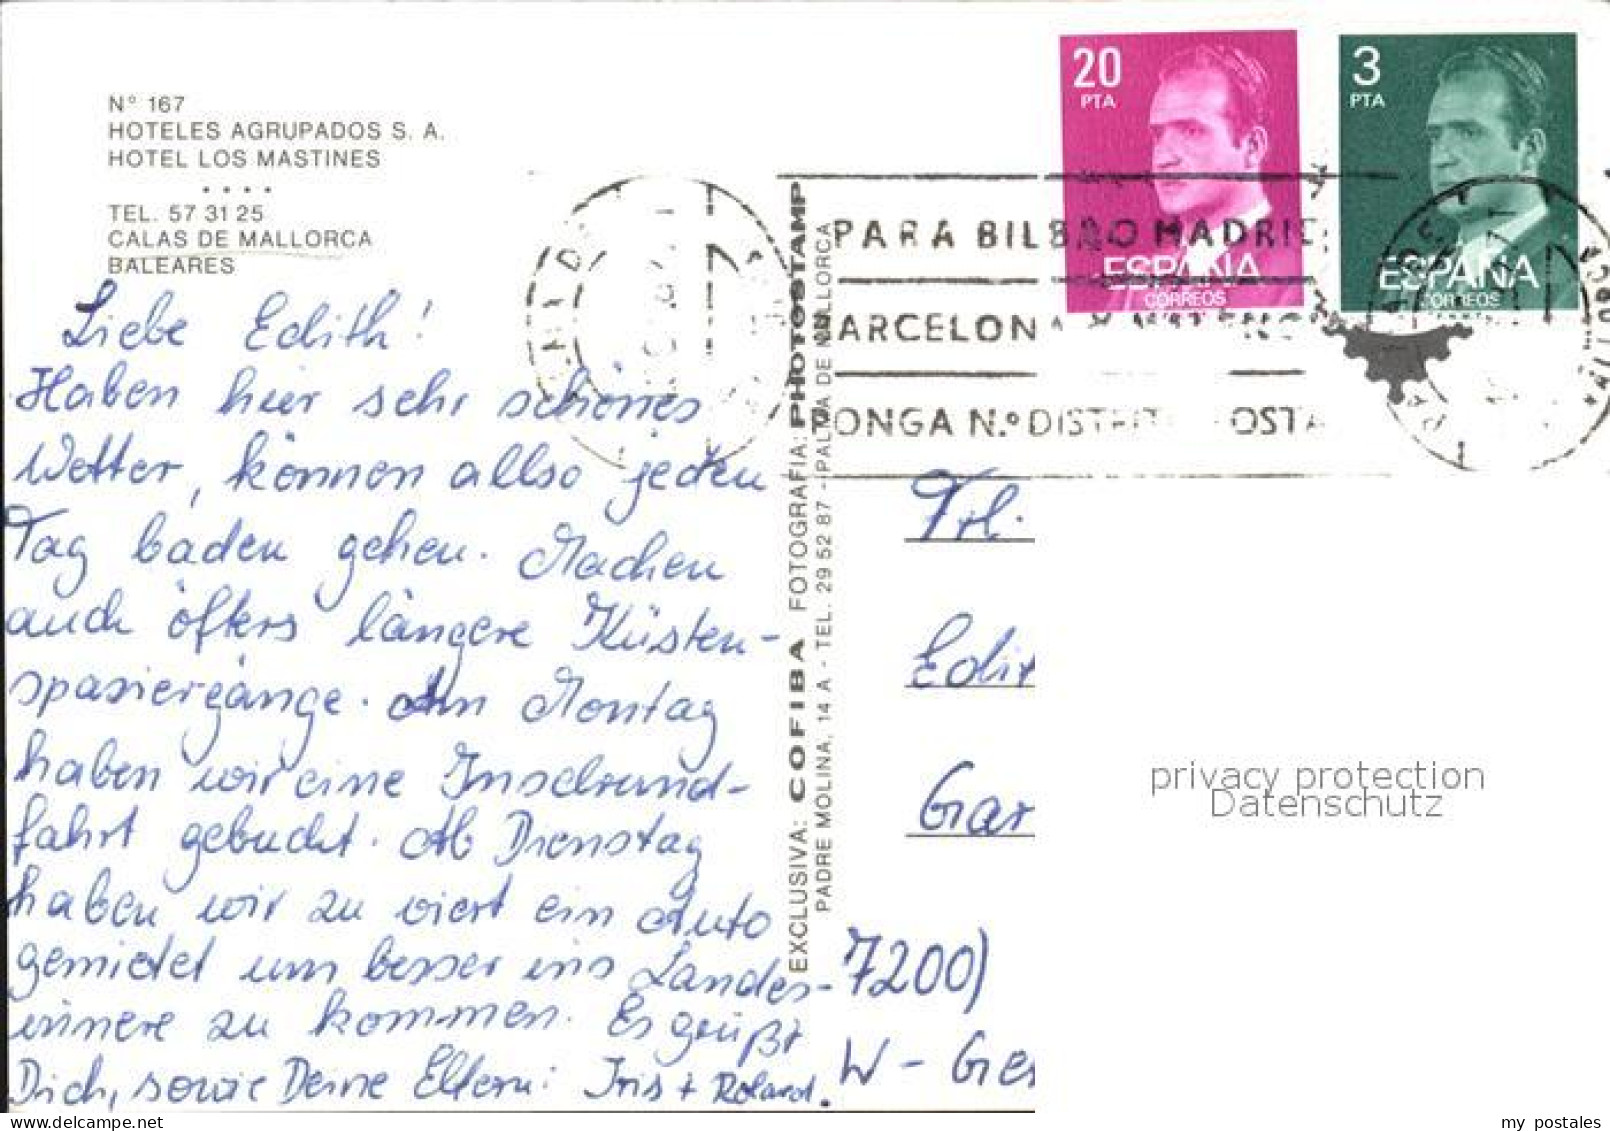 N° 167
HOTELES AGRUPADOS S. A.
HOTEL LOS MASTINES
• • • •
TEL. 57 31 25
CALAS DE MALLORCA
BALEARES
Liebe Edith!
Haben hier sehr schönes
Wetter, können allso jeden
Tag baden gehen. Machen
auch öfters längere Küsten-
spaziergänge. Am Montag
haben wir eine Inselrund-
fahrt gebucht. Ab Dienstag
haben wir zu viert ein Auto
gemietet um besser ins Landes-
innere zu kommen. Es grüßt
Dich, sowie Deine Eltern: Iris + Roland.
EXCLUSIVA: COFIBA FOTOGRAFIA: PHOTOSTAMP
PADRE MOLINA, 14 A - TEL. 29 52 87 - PALMA DE MALLORCA
20
PTA
ESPAÑA
CORREOS
3
PTA
ESPAÑA
CORREOS
PARA BILBAO MADRID
BARCELONA
PONGA N.º DISTRITO POSTAL
Frl.
Edit
Gar
7200)
W - Ger
privacy protection
Datenschutz
my postales